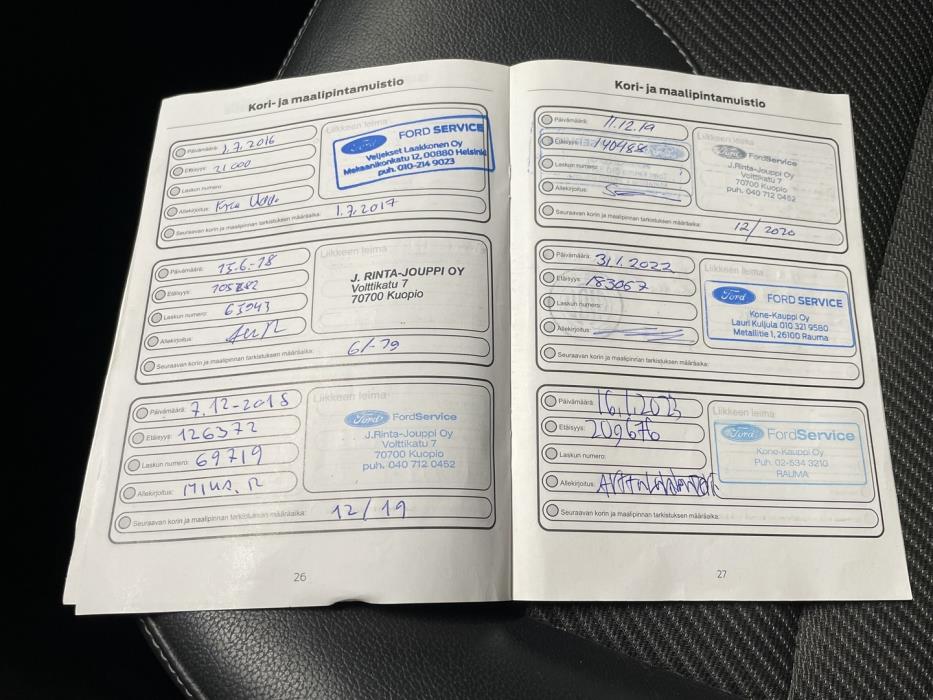 Kori- ja maalipintamuistio
Päivämäärä: 1.7.2016
Etäisyys: 21 000
Laskun numero:
Allekirjoitus:
Seuraavan korin ja maalipinnan tarkistuksen määräaika: 1.7.2017
Liikkeen leima
Ford FORD SERVICE
Veljekset Laakkonen Oy
Mekaanikonkatu 12, 00880 Helsinki
puh. 010-214 9023
Päivämäärä: 15.6.-18
Etäisyys: 105282
Laskun numero: 63943
Allekirjoitus:
Seuraavan korin ja maalipinnan tarkistuksen määräaika: 6/-19
Liikkeen leima
J. RINTA-JOUPPI OY
Volttikatu 7
70700 Kuopio
Päivämäärä: 7.12-2018
Etäisyys: 126372
Laskun numero: 69719
Allekirjoitus: Mika. R
Seuraavan korin ja maalipinnan tarkistuksen määräaika: 12/19
Liikkeen leima
Ford FordService
J.Rinta-Jouppi Oy
Volttikatu 7
70700 Kuopio
puh. 040 712 0452
26
Kori- ja maalipintamuistio
Päivämäärä: 11.12.19
Etäisyys: 140488
Laskun numero:
Allekirjoitus:
Seuraavan korin ja maalipinnan tarkistuksen määräaika: 12/2020
Liikkeen leima
Ford FordService
J.Rinta-Jouppi Oy
Volttikatu 7
70700 Kuopio
puh. 040 712 0452
Päivämäärä: 31.1.2022
Etäisyys: 183067
Laskun numero:
Allekirjoitus:
Seuraavan korin ja maalipinnan tarkistuksen määräaika:
Liikkeen leima
Ford FORD SERVICE
Kone-Kauppi Oy
Lauri Kuljula 010 321 9580
Metallitie 1, 26100 Rauma
Päivämäärä: 16.1.2023
Etäisyys: 209676
Laskun numero:
Allekirjoitus:
Seuraavan korin ja maalipinnan tarkistuksen määräaika:
Liikkeen leima
Ford FordService
Kone-Kauppi Oy
Puh. 02-534 3210
RAUMA
27